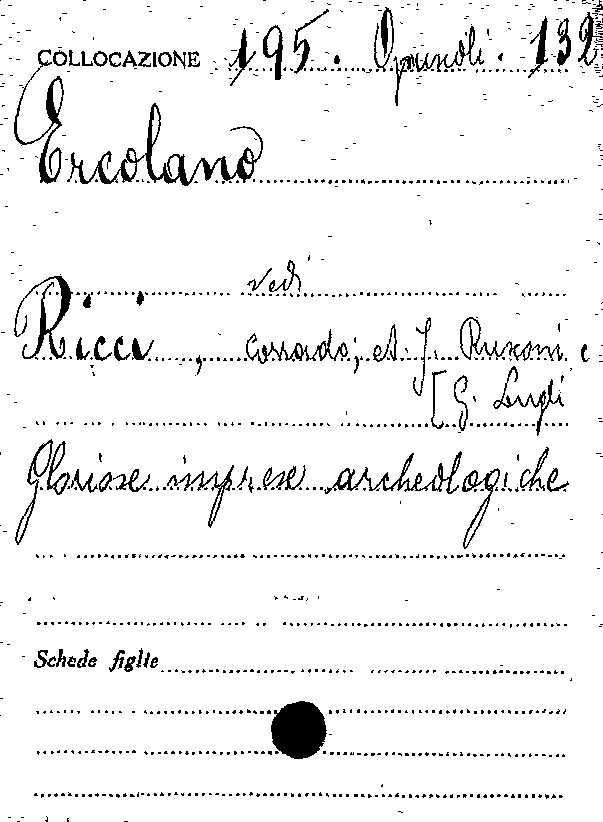 COLLOCAZIONE 195. Opuscoli. 132
Ercolano
vedi
Ricci, Corrado; A. J. Rusconi e
[G. Lugli
Gloriose imprese archeologiche
Schede figlie